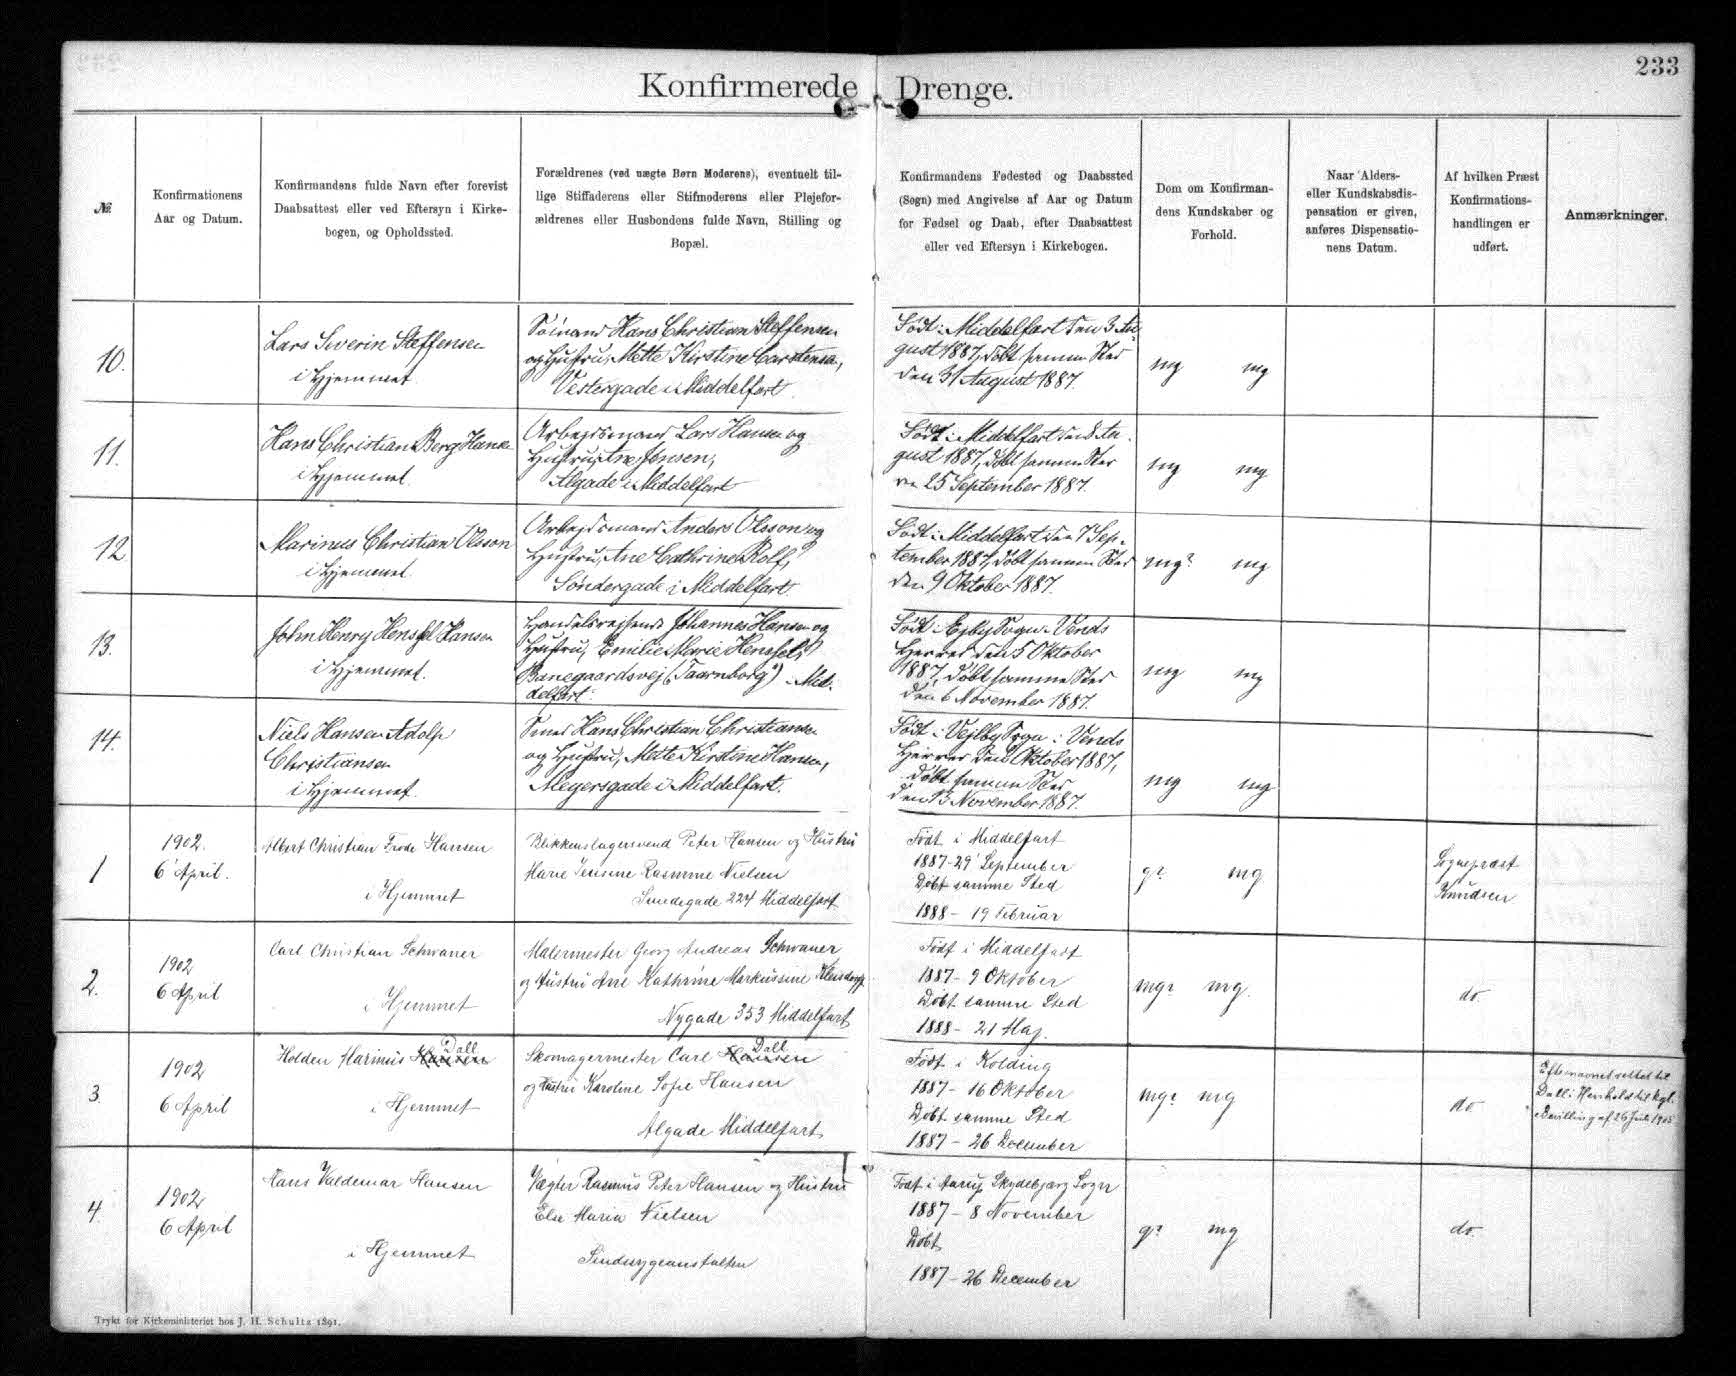 233
Konfirmerede Drenge.
№
Konfirmationens
Aar og Datum.
Konfirmandens fulde Navn efter forevist
Daabsattest eller ved Eftersyn i Kirke-
bogen, og Opholdssted.
Forældrenes (ved uægte Børn Moderens), eventuelt til-
lige Stiffaderens eller Stifmoderens eller Plejefor-
ældrenes eller Husbondens fulde Navn, Stilling og
Bopæl.
Konfirmandens Fødested og Daabssted
(Sogn) med Angivelse af Aar og Datum
for Fødsel og Daab, efter Daabsattest
eller ved Eftersyn i Kirkebogen.
Dom om Konfirman-
dens Kundskaber og
Forhold.
Naar Alders-
eller Kundskabsdis-
pensation er given,
anføres Dispensatio-
nens Datum.
Af hvilken Præst
Konfirmations-
handlingen er
udført.
Anmærkninger.
10.
Lars Severin Steffensen
i Hjemmet.
Sømand Hans Christian Steffensen
og Hustru, Mette Kirstine Carstensen,
Vestergade i Middelfart.
Født i Middelfart den 3 Au-
gust 1887, døbt samme Sted
den 31 August 1887.
mg mg
11.
Hans Christian Berg Hansen
i Hjemmet.
Arbejdsmand Lars Hansen og
Hustru, Ane Jensen,
Algade i Middelfart
Født i Middelfart den 8 Au-
gust 1887, døbt samme Sted
den 25 September 1887.
mg mg
12
Marinus Christian Olsson
i Hjemmet.
Arbejdsmand Anders Olsson og
Hustru, Ane Cathrine Rolf,
Søndergade i Middelfart.
Født i Middelfart den 7 Sep-
tember 1887, døbt samme Sted
den 9 Oktober 1887.
mg? mg
13.
John Henry Henschel Hansen
i Hjemmet.
Handelsrejsende Johannes Hansen og
Hustru, Emilie Marie Henschel,
Banegaardsvej ("Taarnborg") Mid-
delfart.
Født i Ejby Sogn i Vends
Herred den 5 Oktober
1887, døbt samme Sted
den 6 November 1887.
mg mg
14.
Niels Hansen Adolp
Christiansen
i Hjemmet.
Smed Hans Christian Christiansen
og Hustru, Mette Kirstine Hansen,
Meyersgade i Middelfart.
Født i Vejlby Sogn i Vends
Herred den Oktober 1887,
døbt samme Sted
den 13 November 1887.
mg mg
1
1902.
6 April.
Albert Christian Frode Hansen
i Hjemmet
Blikkenslagersvend Peter Hansen og Hustru
Marie Jensine Rasmine Nielsen
Smedegade 224 Middelfart
Født i Middelfart
1887-29 September
Døbt samme Sted
1888- 19 Februar
g? mg
Sognepræst
Knudsen
2.
1902
6 April
Carl Christian Schwaner
i Hjemmet
Malermester Georg Andreas Schwaner
og Hustru Ane Kathrine Markussine
Nygade 353 Middelfart
Født i Middelfart
1887- 9 Oktober
Døbt samme Sted
1888- 21 Maj.
mg? mg.
do
3.
1902
6 April
Holden Marinus Hansen Dall
i Hjemmet
Skomagermester Carl Hansen Dall
og Hustru Karoline Sofie Hansen
Algade Middelfart
Født i Kolding
1887- 16 Oktober
Døbt samme Sted
1887- 26 December
mg? mg
do
Efternavnet rettet til
Dall i Henhold til kgl.
Bevilling af 26 Juli 1905
4.
1902
6 April
Hans Valdemar Hansen
i Hjemmet
Vægter Rasmus Peter Hansen og Hustru
Else Maria Nielsen
Sindssygeanstalten
Født i Aarup Skydebjerg Sogn
1887- 8 November
Døbt
1887- 26 December
g? mg
do.
Trykt for Kirkeministeriet hos J. H. Schultz 1891.